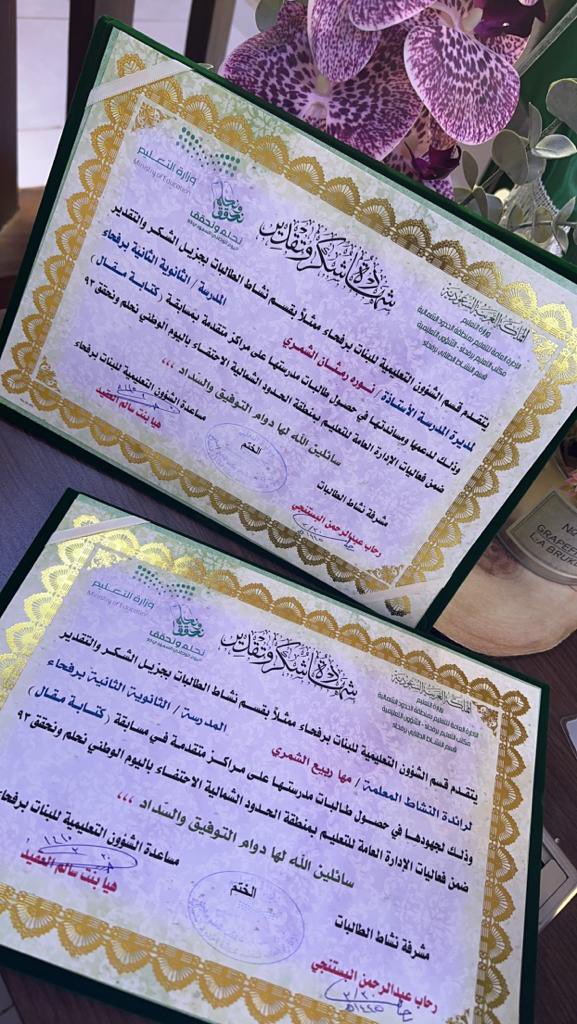 وزارة التعليم
Ministry of Education
نحلم ونحقق
نحلم ونحقق
اليوم الوطني السعودي ٩٣
شهادة شكر وتقدير
المملكة العربية السعودية
وزارة التعليم
الإدارة العامة للتعليم بمنطقة الحدود الشمالية
مكتب التعليم برفحاء - الشؤون التعليمية
قسم النشاط الطلابي برفحاء
يتقدم قسم الشؤون التعليمية للبنات برفحاء ممثلاً بقسم نشاط الطالبات بجزيل الشكر والتقدير
لمديرة المدرسة الأستاذة / نوره رمثان الشمري المدرسة / الثانوية الثانية برفحاء
وذلك لدعمها ومساندتها في حصول طالبات مدرستها على مراكز متقدمة بمسابقة ( كتابة مقال )
ضمن فعاليات الإدارة العامة للتعليم بمنطقة الحدود الشمالية الاحتفاء باليوم الوطني نحلم ونحقق ٩٣
سائلين الله لها دوام التوفيق والسداد ،،،
مشرفة نشاط الطالبات
الختم
مساعدة الشؤون التعليمية للبنات برفحاء
رحاب عبدالرحمن البستنجي
هيا بنت سالم العقيد
وزارة التعليم
Ministry of Education
نحلم ونحقق
نحلم ونحقق
اليوم الوطني السعودي ٩٣
شهادة شكر وتقدير
المملكة العربية السعودية
وزارة التعليم
الإدارة العامة للتعليم بمنطقة الحدود الشمالية
مكتب التعليم برفحاء - الشؤون التعليمية
قسم النشاط الطلابي برفحاء
يتقدم قسم الشؤون التعليمية للبنات برفحاء ممثلاً بقسم نشاط الطالبات بجزيل الشكر والتقدير
لرائدة النشاط المعلمة / مها ربيع الشمري المدرسة / الثانوية الثانية برفحاء
وذلك لجهودها في حصول طالبات مدرستها على مراكز متقدمة في مسابقة ( كتابة مقال )
ضمن فعاليات الإدارة العامة للتعليم بمنطقة الحدود الشمالية الاحتفاء باليوم الوطني نحلم ونحقق ٩٣
سائلين الله لها دوام التوفيق والسّداد ،،،
مشرفة نشاط الطالبات
الختم
مساعدة الشؤون التعليمية للبنات برفحاء
رحاب عبدالرحمن البستنجي
هيا بنت سالم العقيد
GRAPEF
L.A BRUK